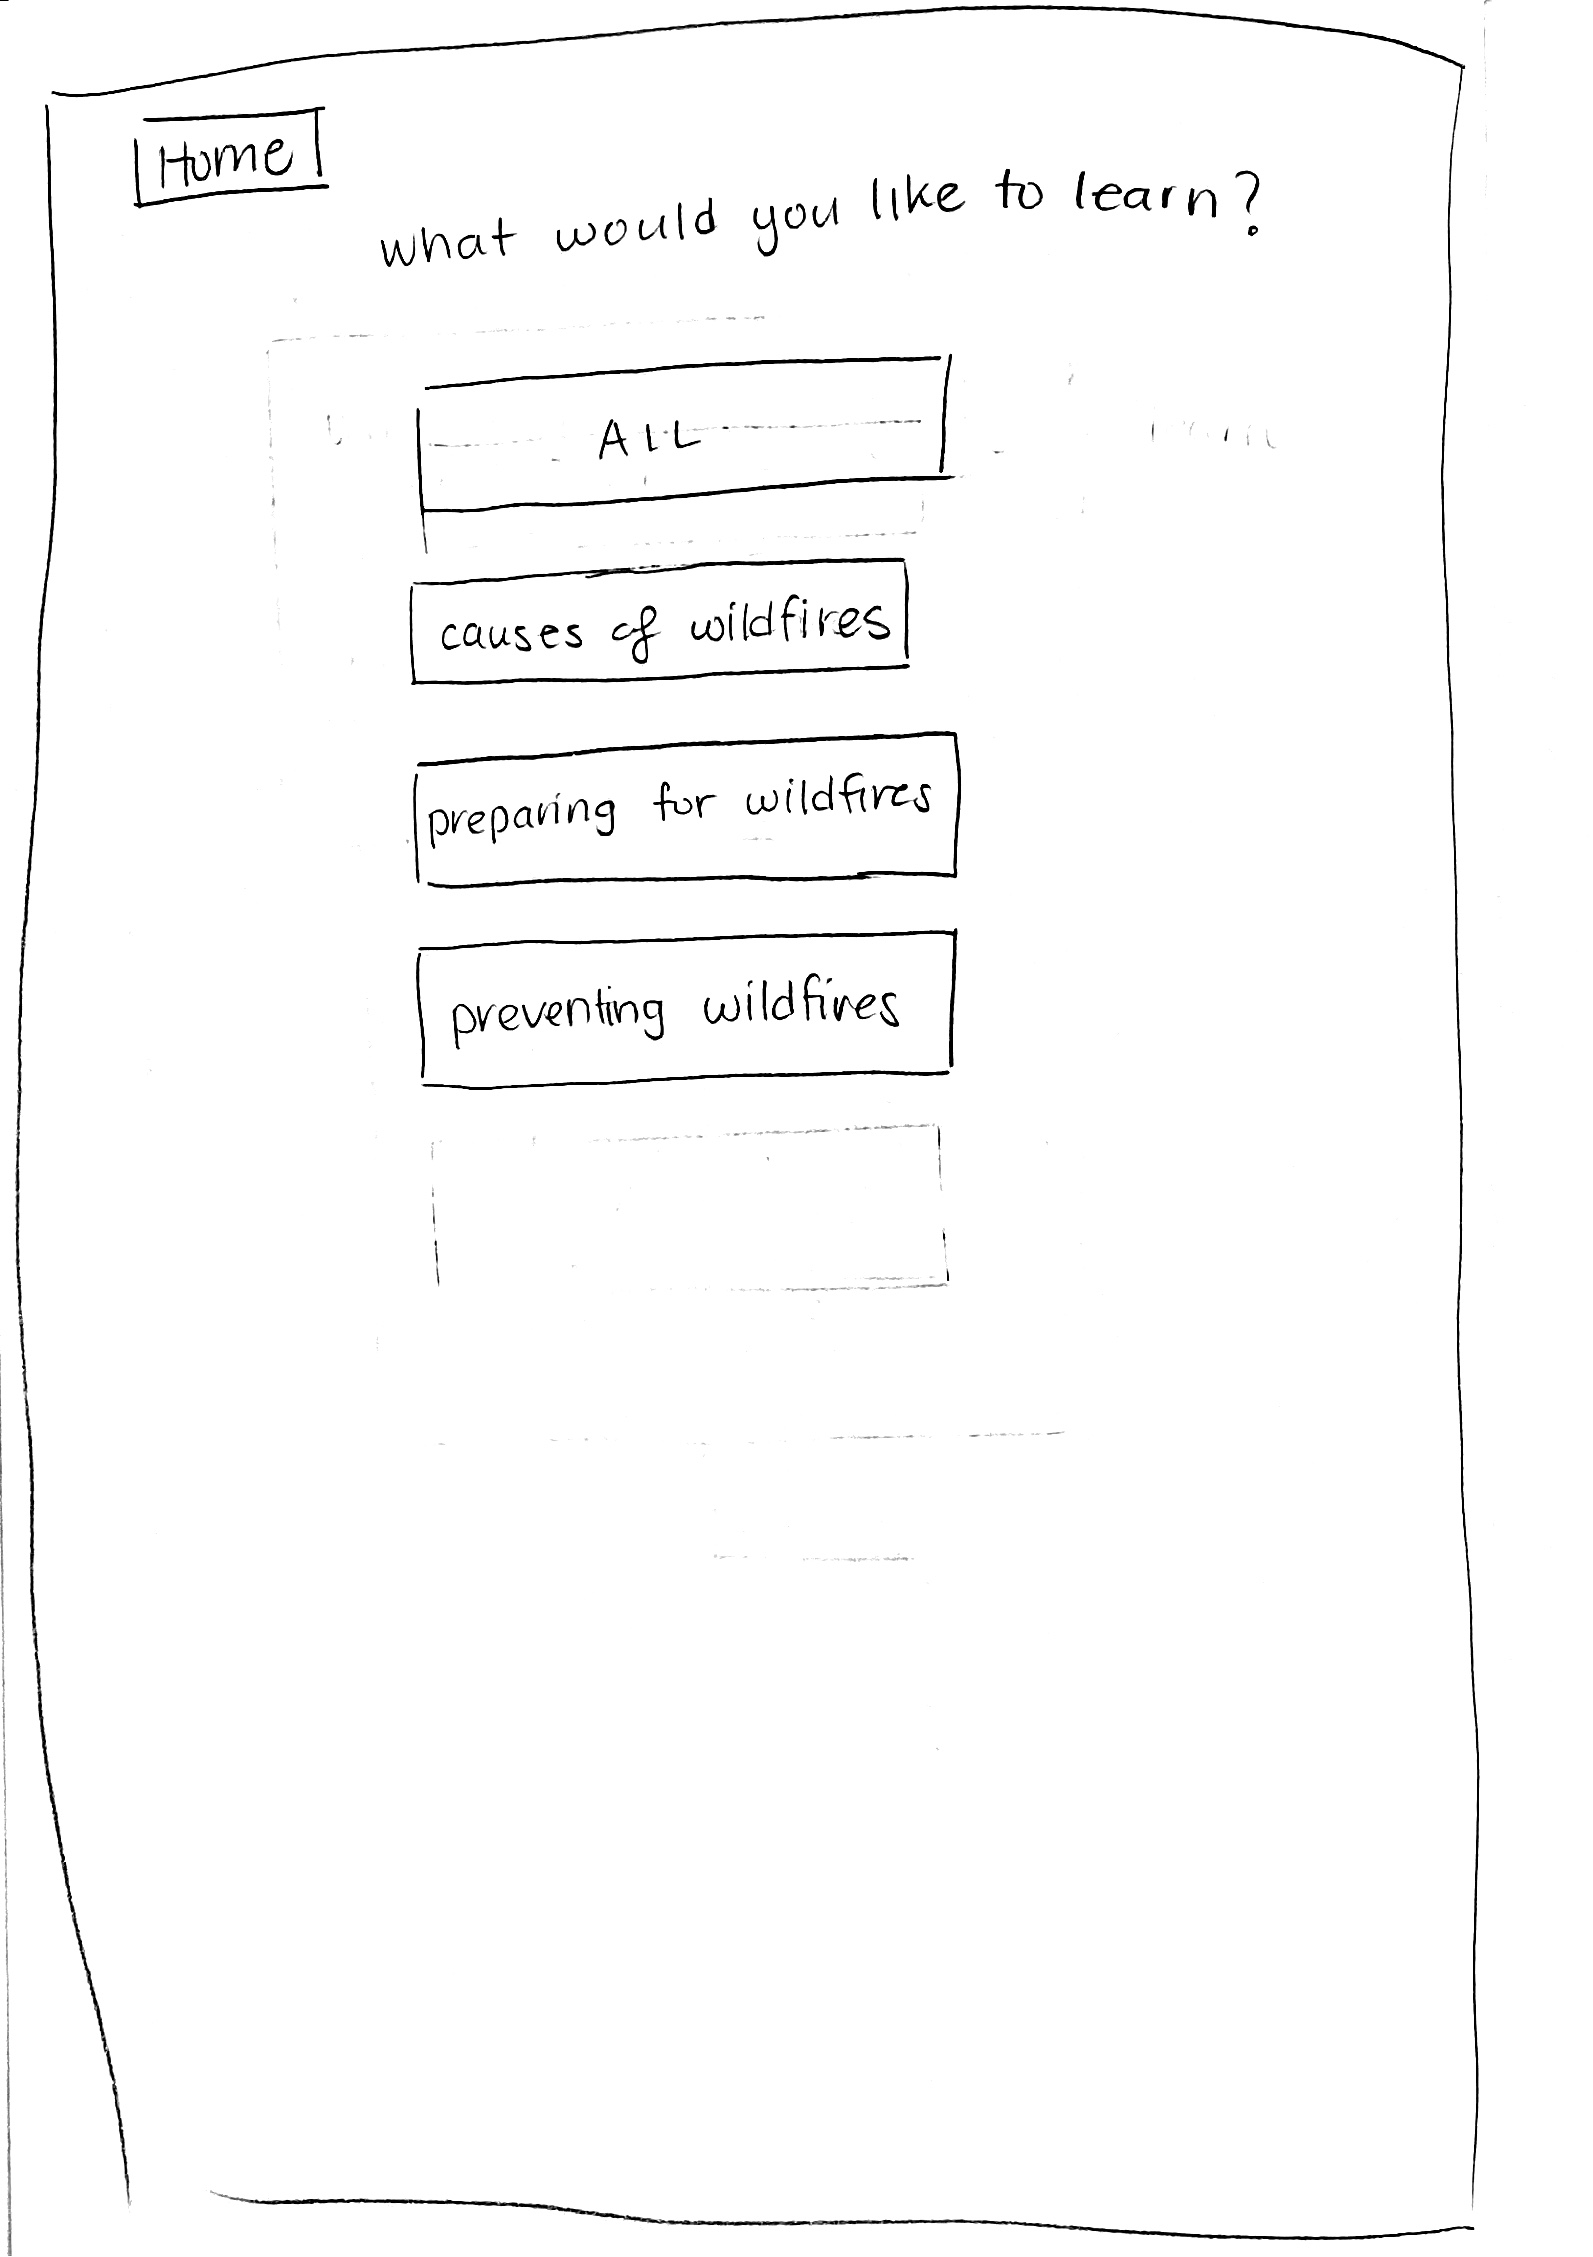 Home
what would you like to learn?
ALL
causes of wildfires
preparing for wildfires
preventing wildfires